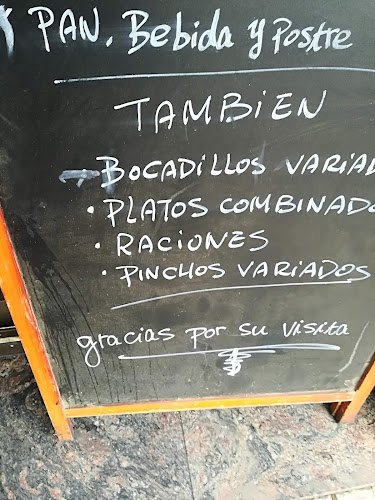 PAN. Bebida y Postre
TAMBIEN
BOCADILLOS VARIAD
• PLATOS COMBINADO
• RACIONES
• PINCHOS VARIADOS
gracias por su visita